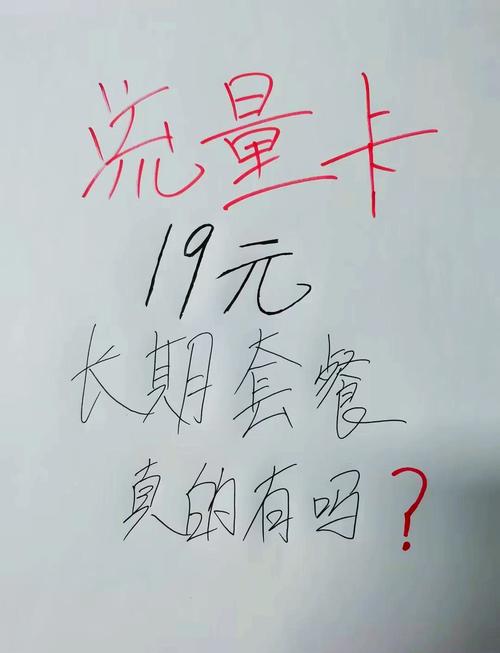 流量卡
19元
长期套餐
真的有吗?